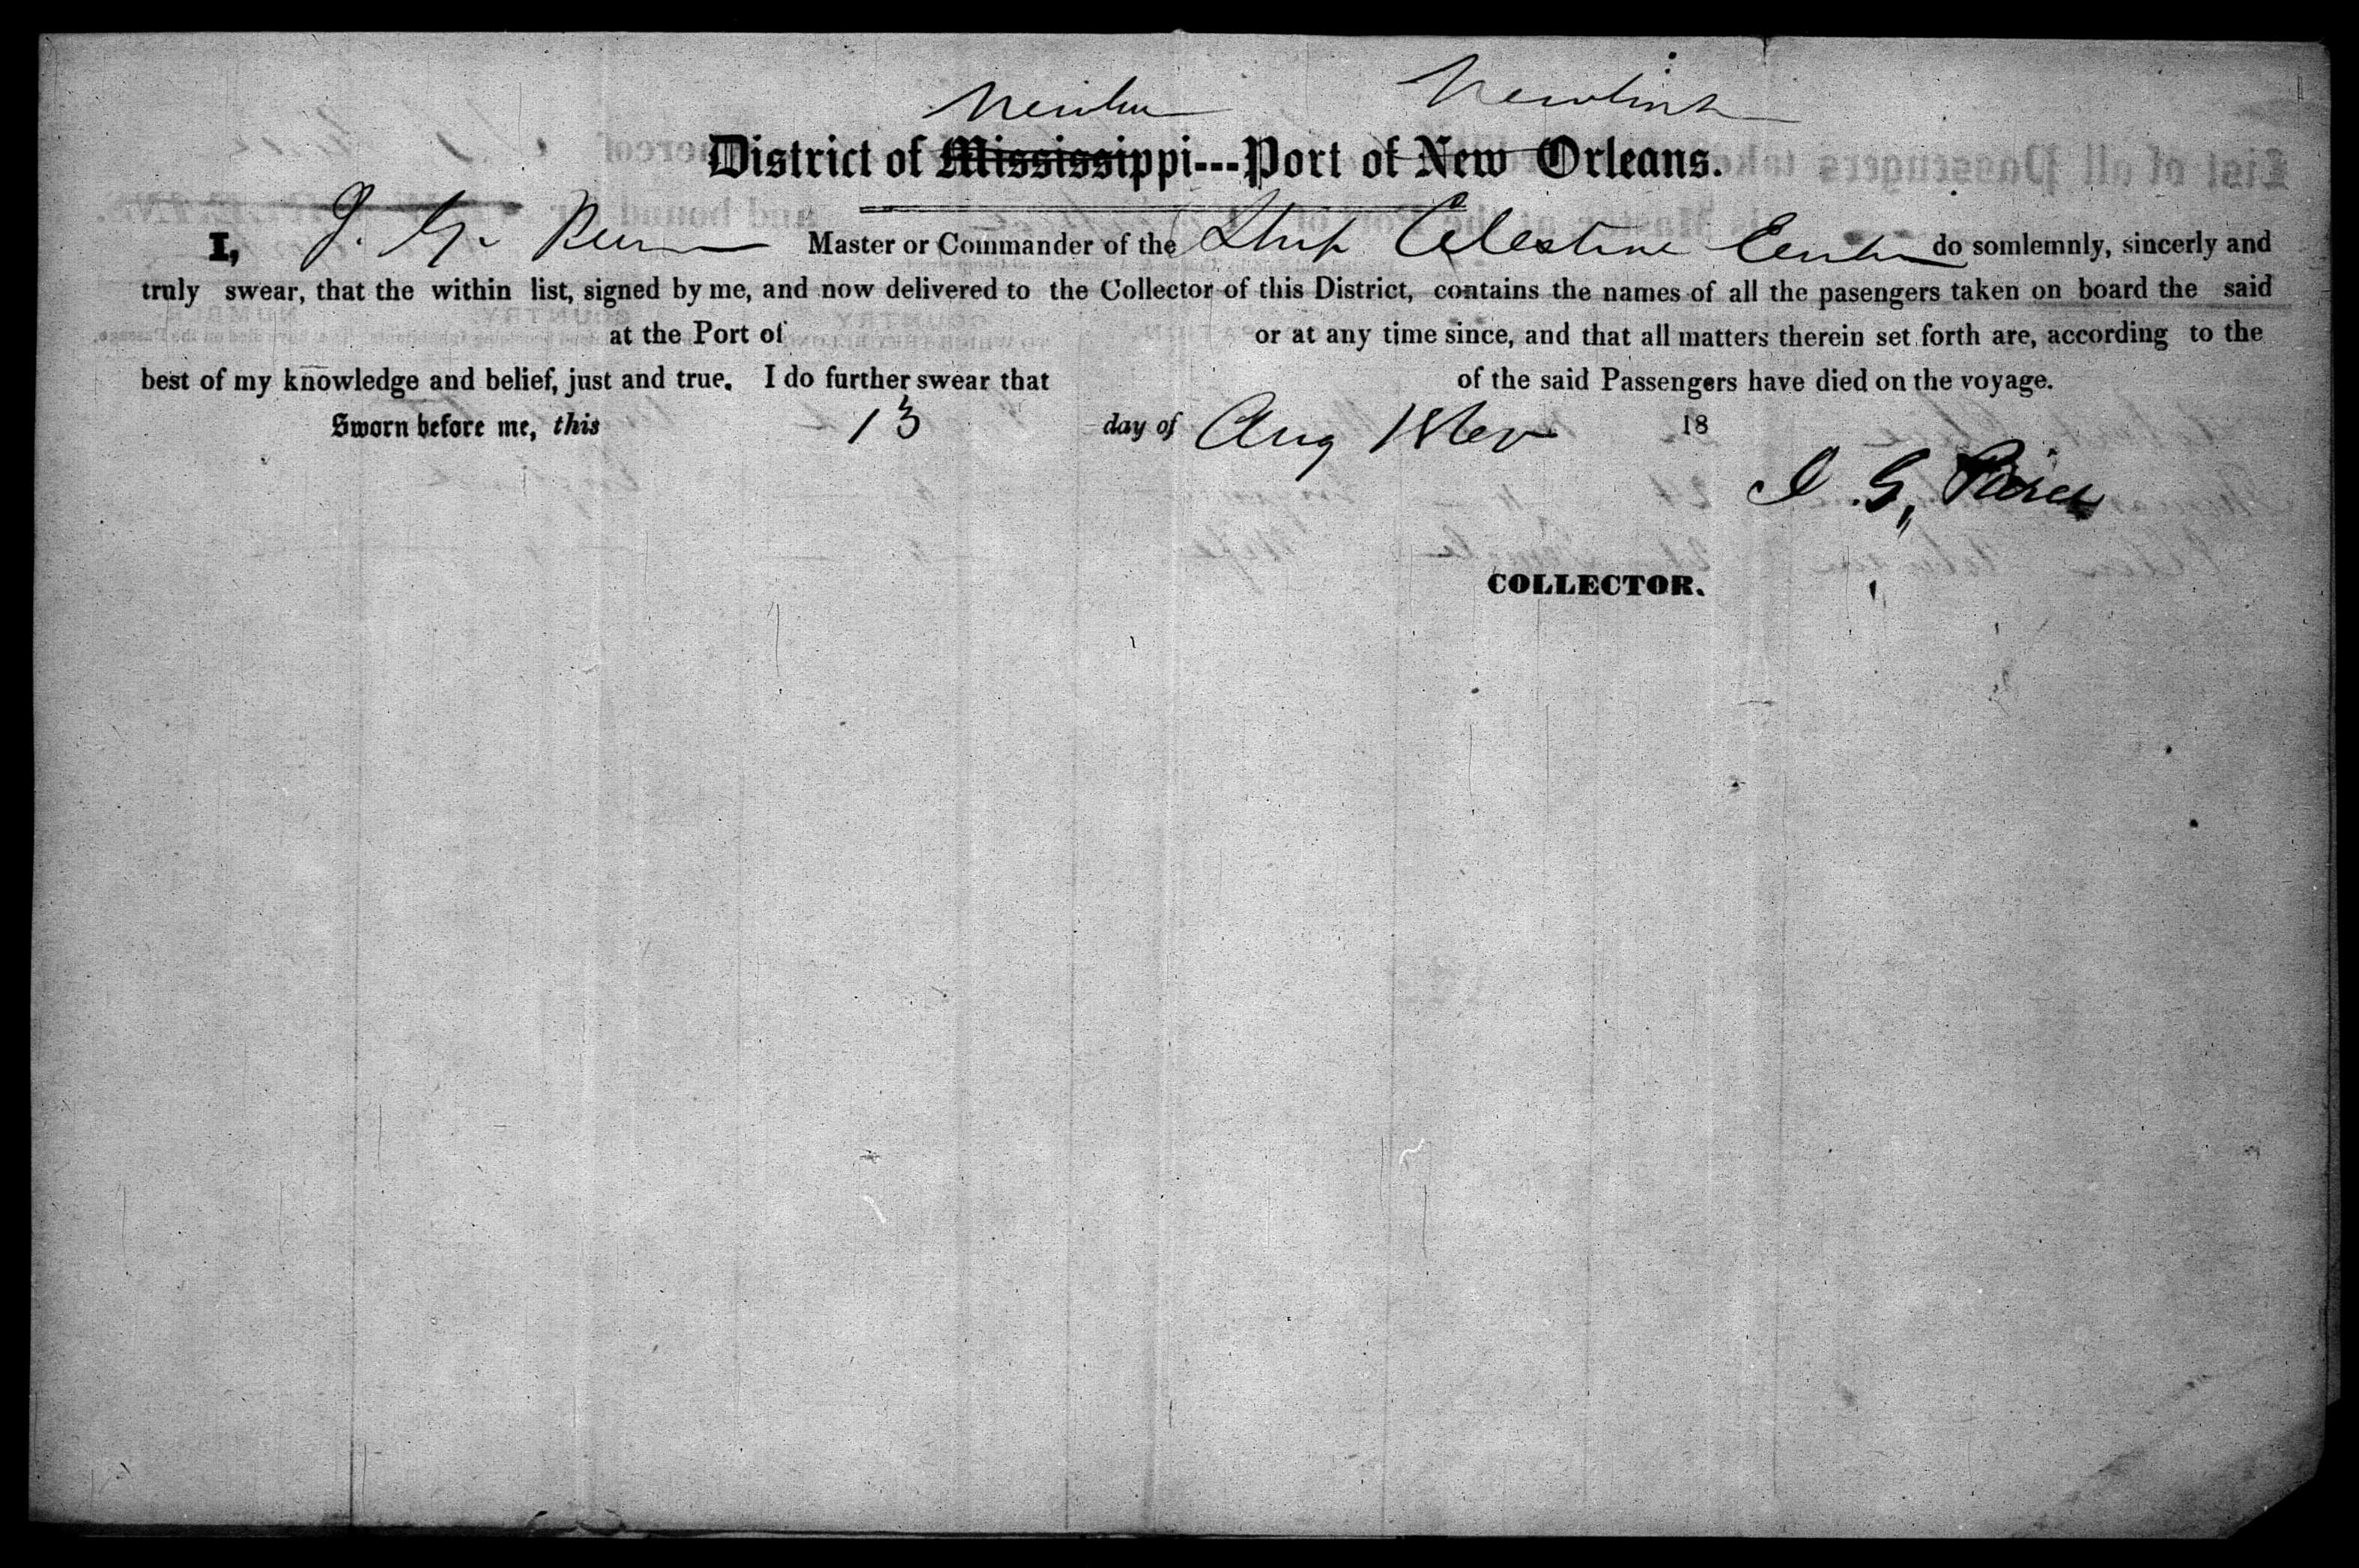 District of Mississippi---Port of New Orleans.
I, J. G. Master or Commander of the Ship Celestine do somlemnly, sincerly and
truly swear, that the within list, signed by me, and now delivered to the Collector of this District, contains the names of all the pasengers taken on board the said
at the Port of or at any time since, and that all matters therein set forth are, according to the
best of my knowledge and belief, just and true. I do further swear that of the said Passengers have died on the voyage.
Sworn before me, this 13 day of Aug 18
J. G. Peirce
COLLECTOR.